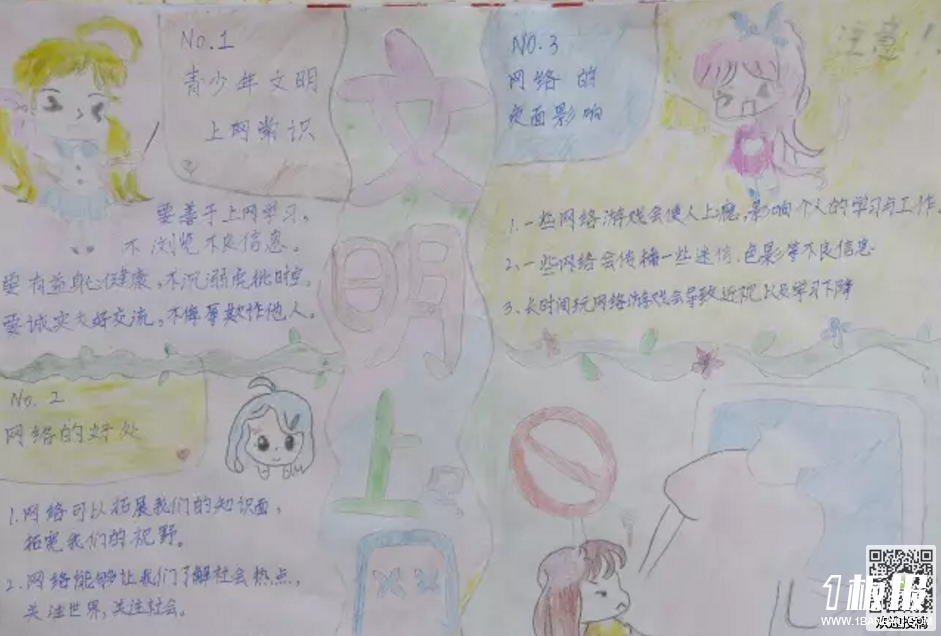 No.1
青少年文明
上网常识
要善于上网学习，
不浏览不良信息。
要有益身心健康，不沉溺虚拟时空，
要诚实友好交流，不侮辱欺诈他人。
No. 2
网络的好处
1.网络可以拓展我们的知识面，
拓宽我们的视野。
2.网络能够让我们了解社会热点，
关注世界，关注社会。
文
明
上
网
NO.3
网络的
负面影响
注意！
1.一些网络游戏会使人上瘾，影响个人的学习与工作。
2.一些网络会传播一些迷信、色影等不良信息
3.长时间玩网络游戏会导致近视以及学习下降
1板报
WWW.1BANBAO.COM
欢迎投稿